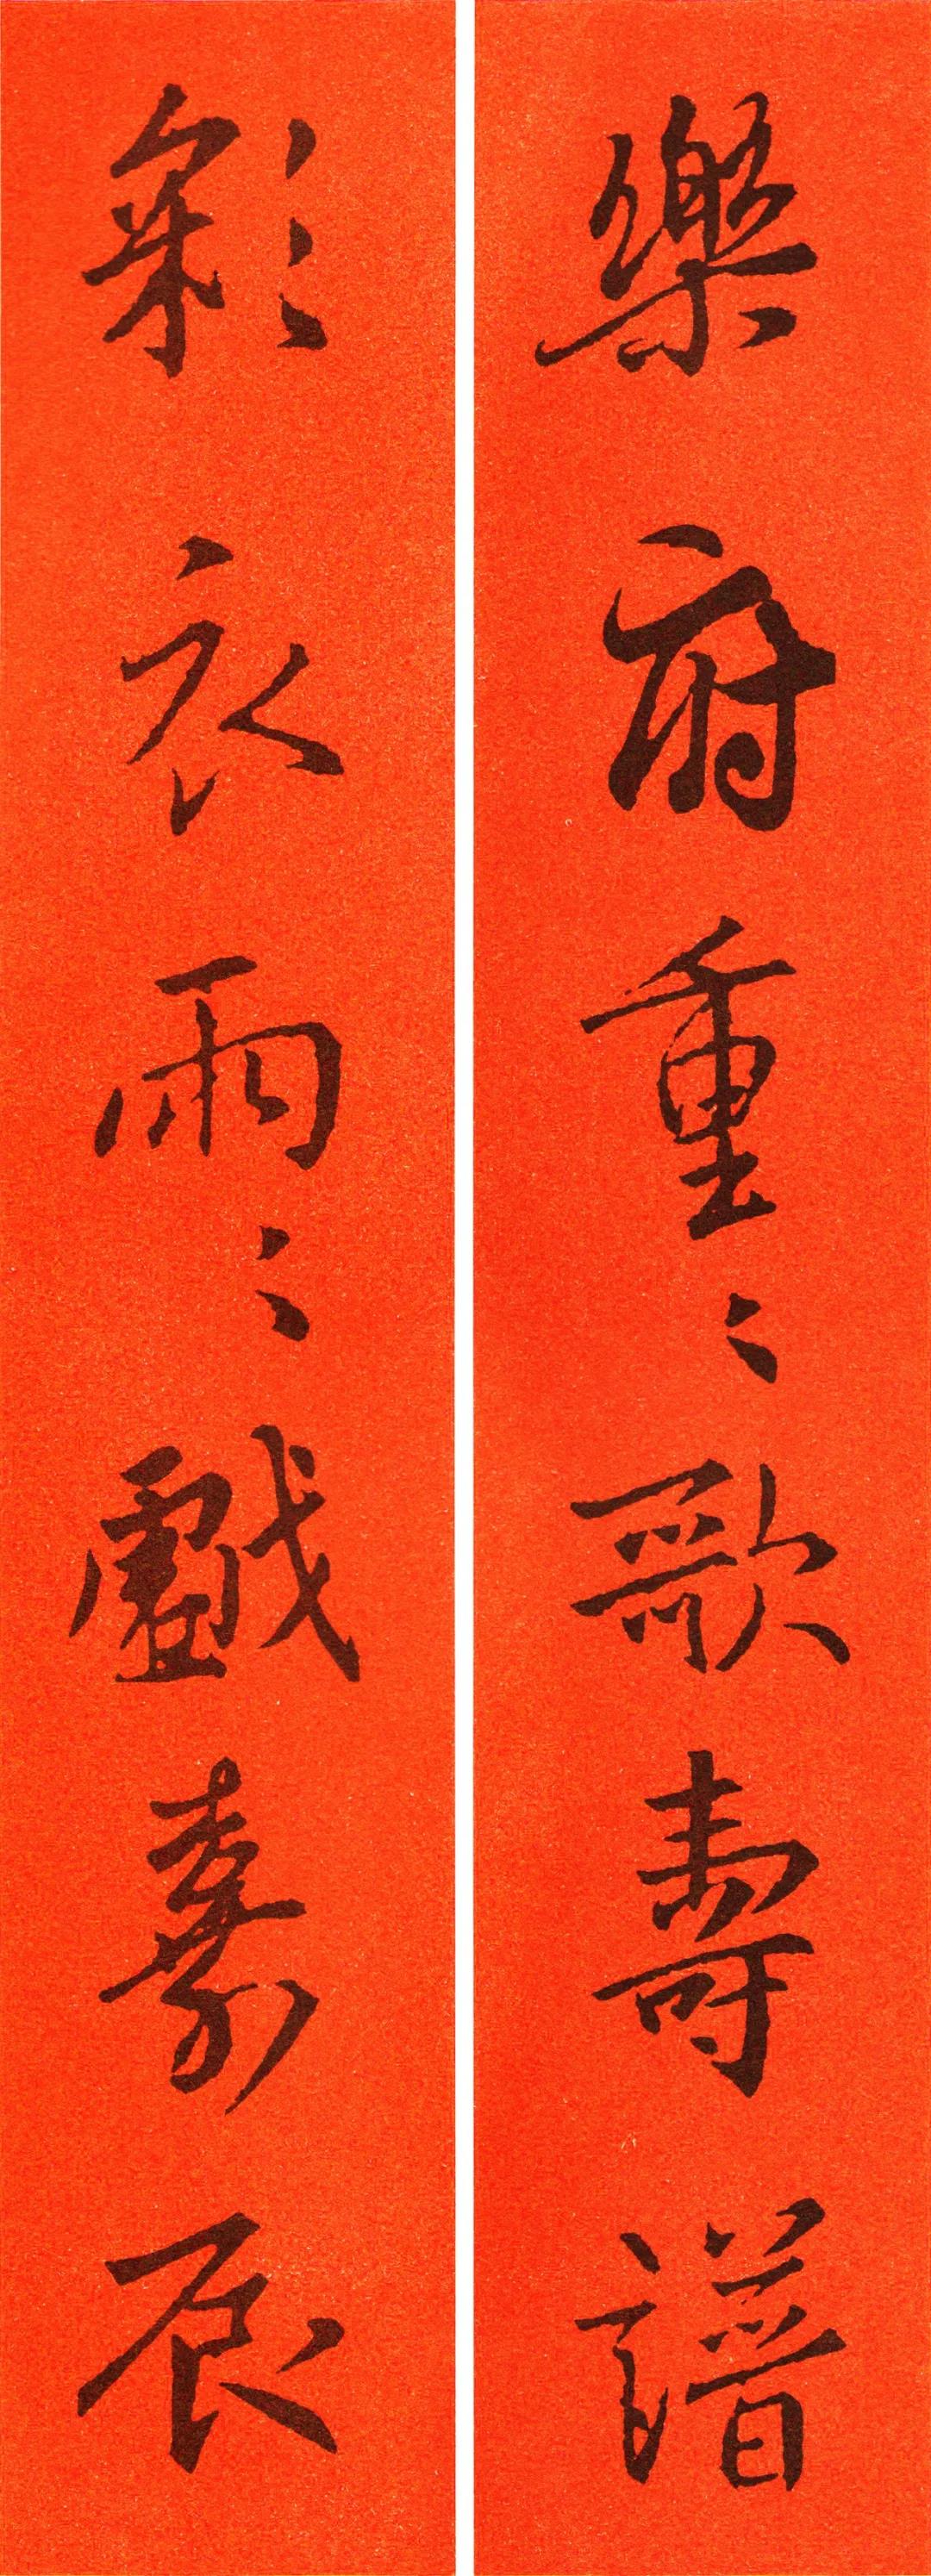 樂府重〻歌壽譜
彩衣兩〻戲嘉辰